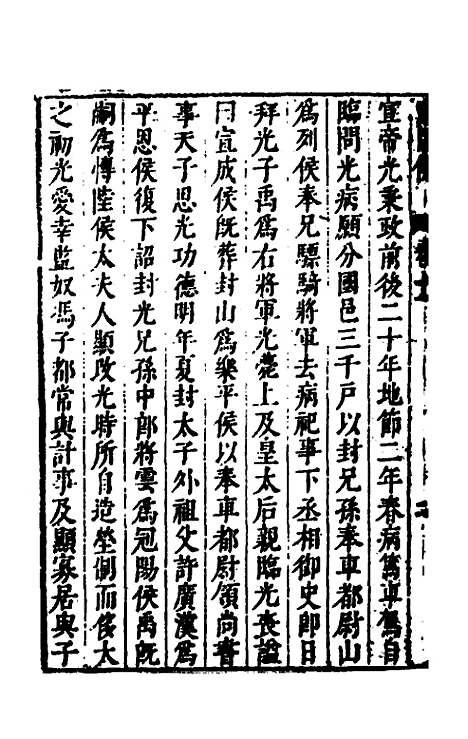 宣帝光秉政前後二十年地節二年春病篤車駕自
臨問光病願分國邑三千戶以封兄孫奉車都尉山
爲列侯奉兄驃騎將軍去病祀事下丞相御史即日
拜光子禹爲右將軍光薨上及皇太后親臨光喪諡
曰宣成侯旣葬封山爲樂平侯以奉車都尉領尚書
事天子思光功德明年夏封太子外祖父許廣漢爲
平恩侯復下詔封光兄孫中郎將雲爲冠陽侯禹旣
嗣爲博陸侯太夫人顯改光時所自造塋制而侈大
之初光愛幸監奴馮子都常與計事及顯寡居與子